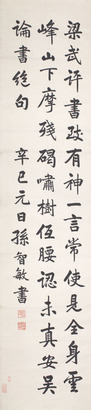 梁武評書致有神一言常使見全身雲
峰山下摩殘碣嘯樹低腰認未真安吳
論書絕句 辛巳元日孫智敏書